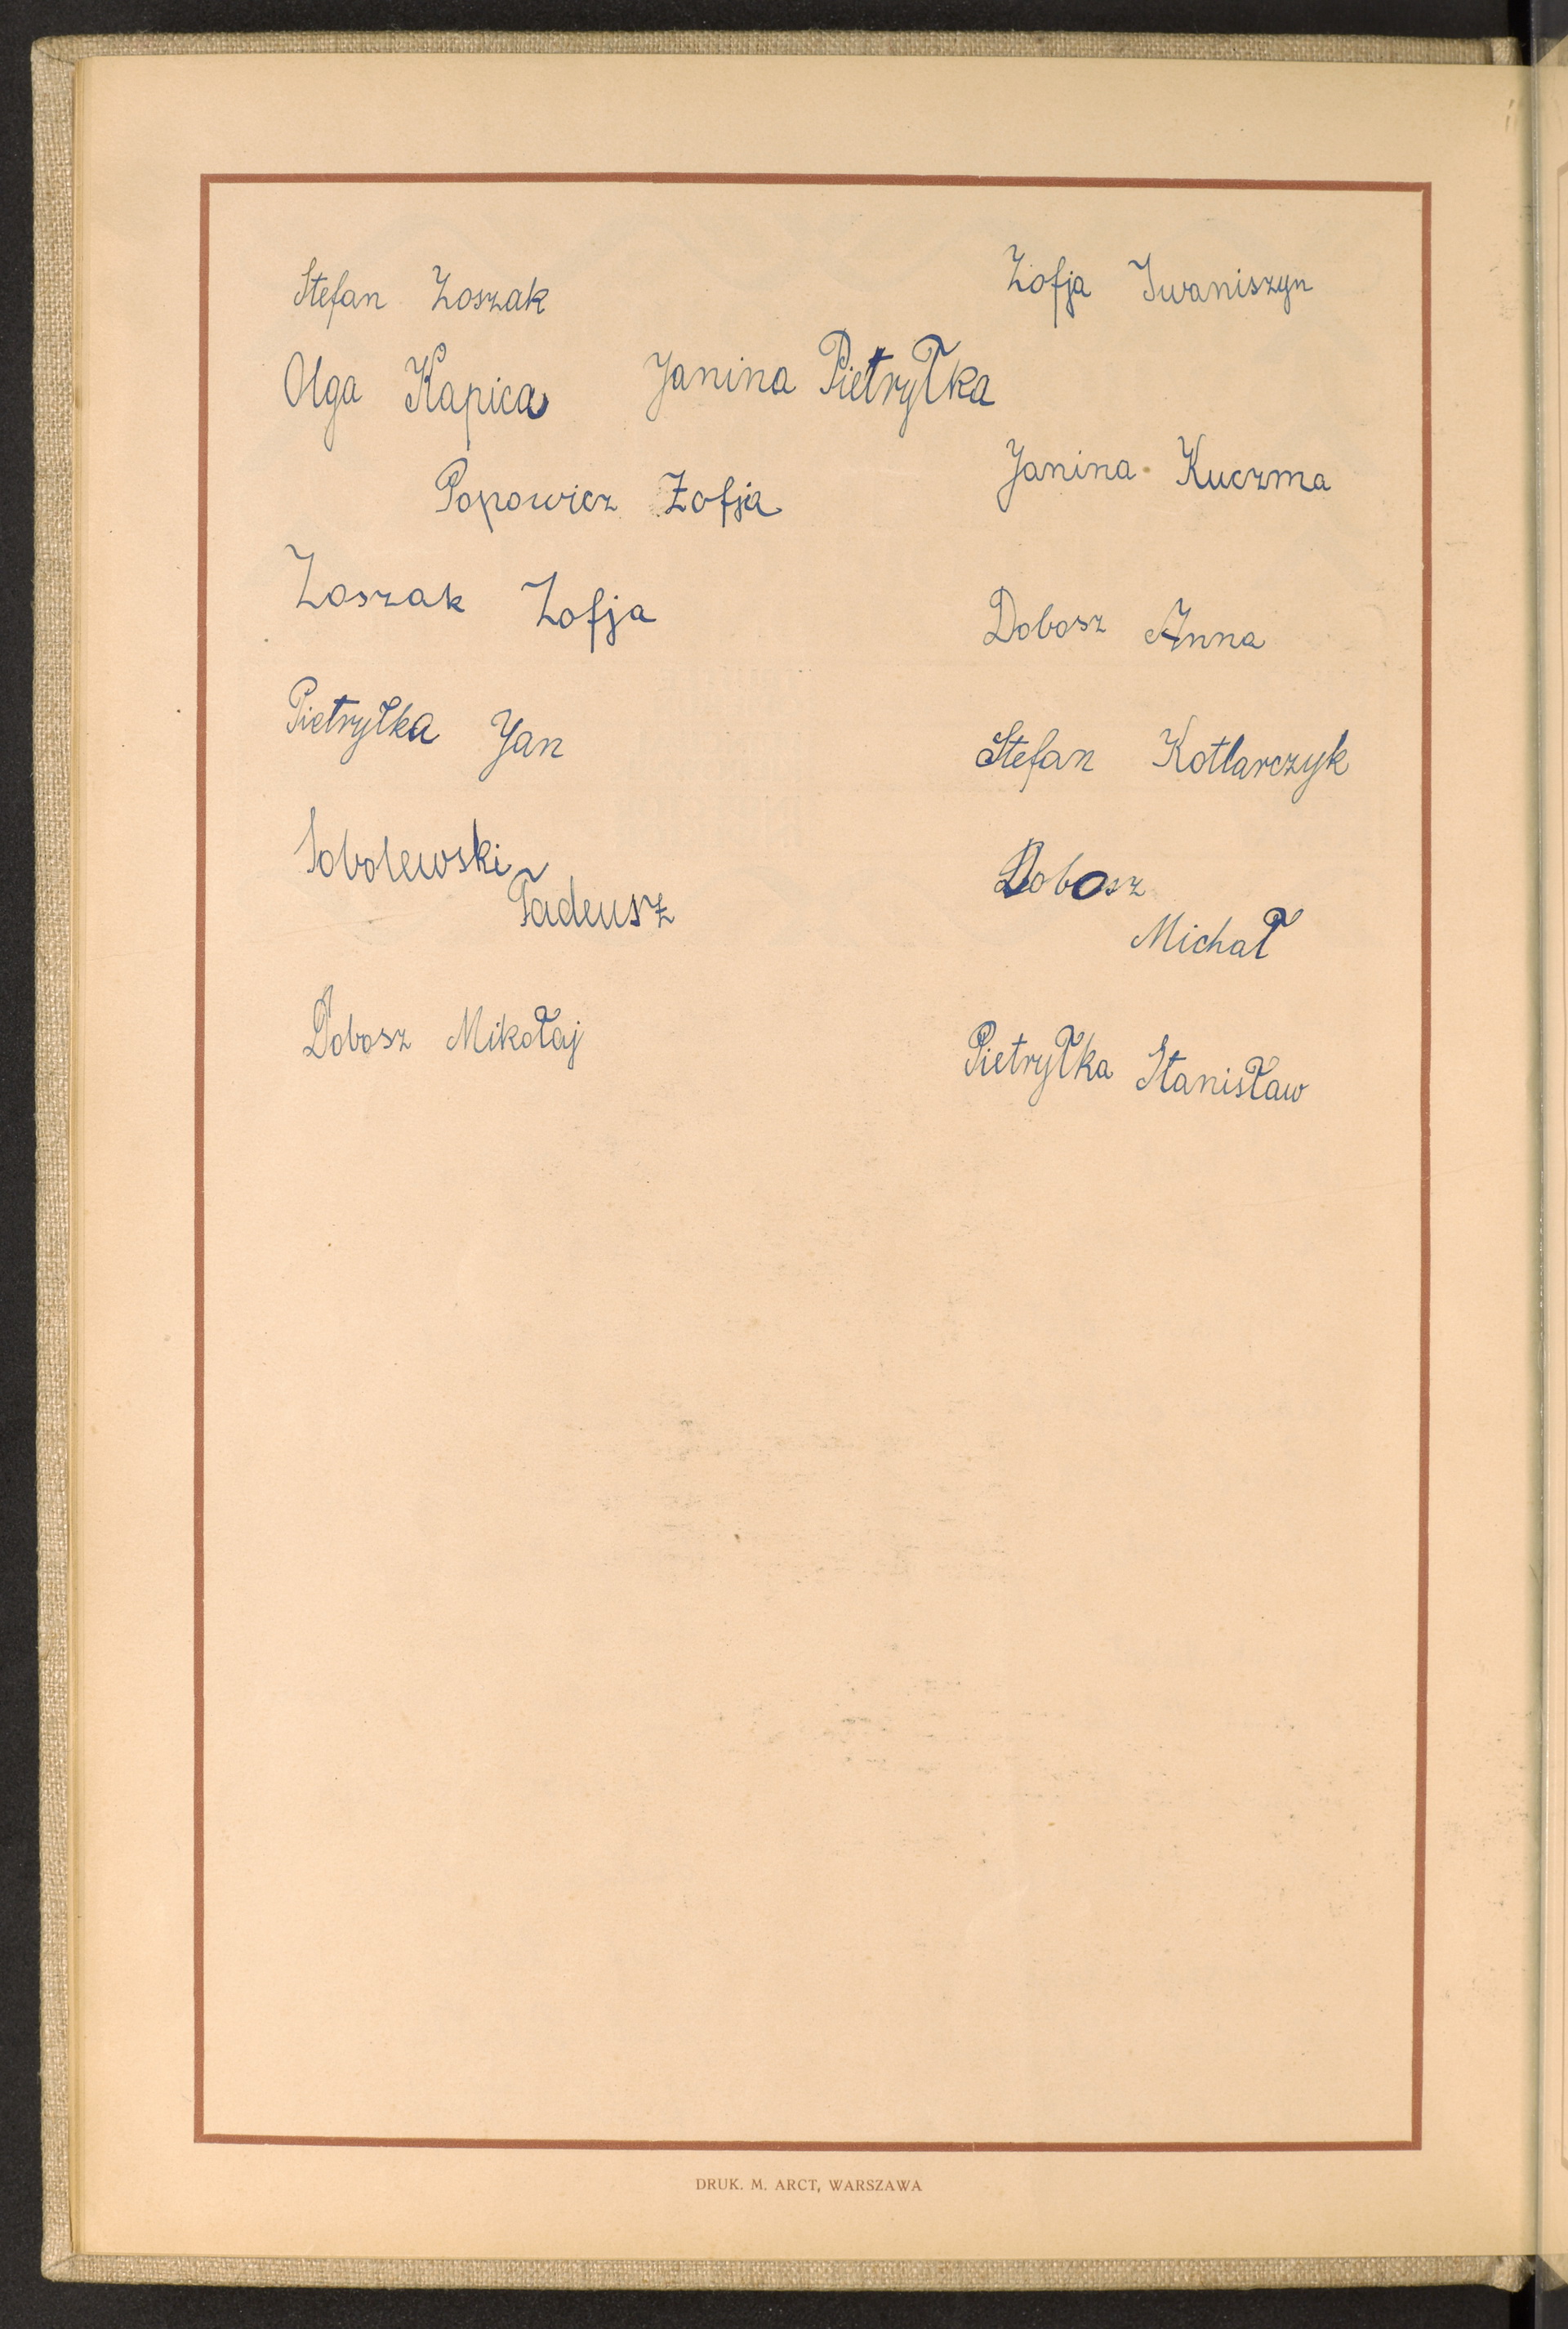 Stefan Zoszak
Zofja Iwaniszyn
Olga Kapica
Janina Pietryłka
Janina Kuczma
Popowicz Zofja
Zoszak Zofja
Dobosz Anna
Pietryłka Jan
Stefan Kotlarczyk
Sobolewski
Tadeusz
Dobosz
Michał
Dobosz Mikołaj
Pietryłka Stanisław
DRUK. M. ARCT, WARSZAWA